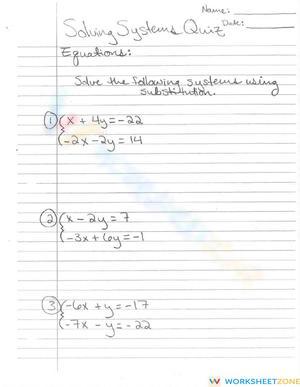 Name:
Solving Systems Quiz
Date:
Equations:
Solve the following systems using
substitution.
1 { x + 4y = -22
-2x - 2y = 14
2 { x - 2y = 7
-3x + 6y = -1
3 { -6x + y = -17
-7x - y = -22
WORKSHEETZONE